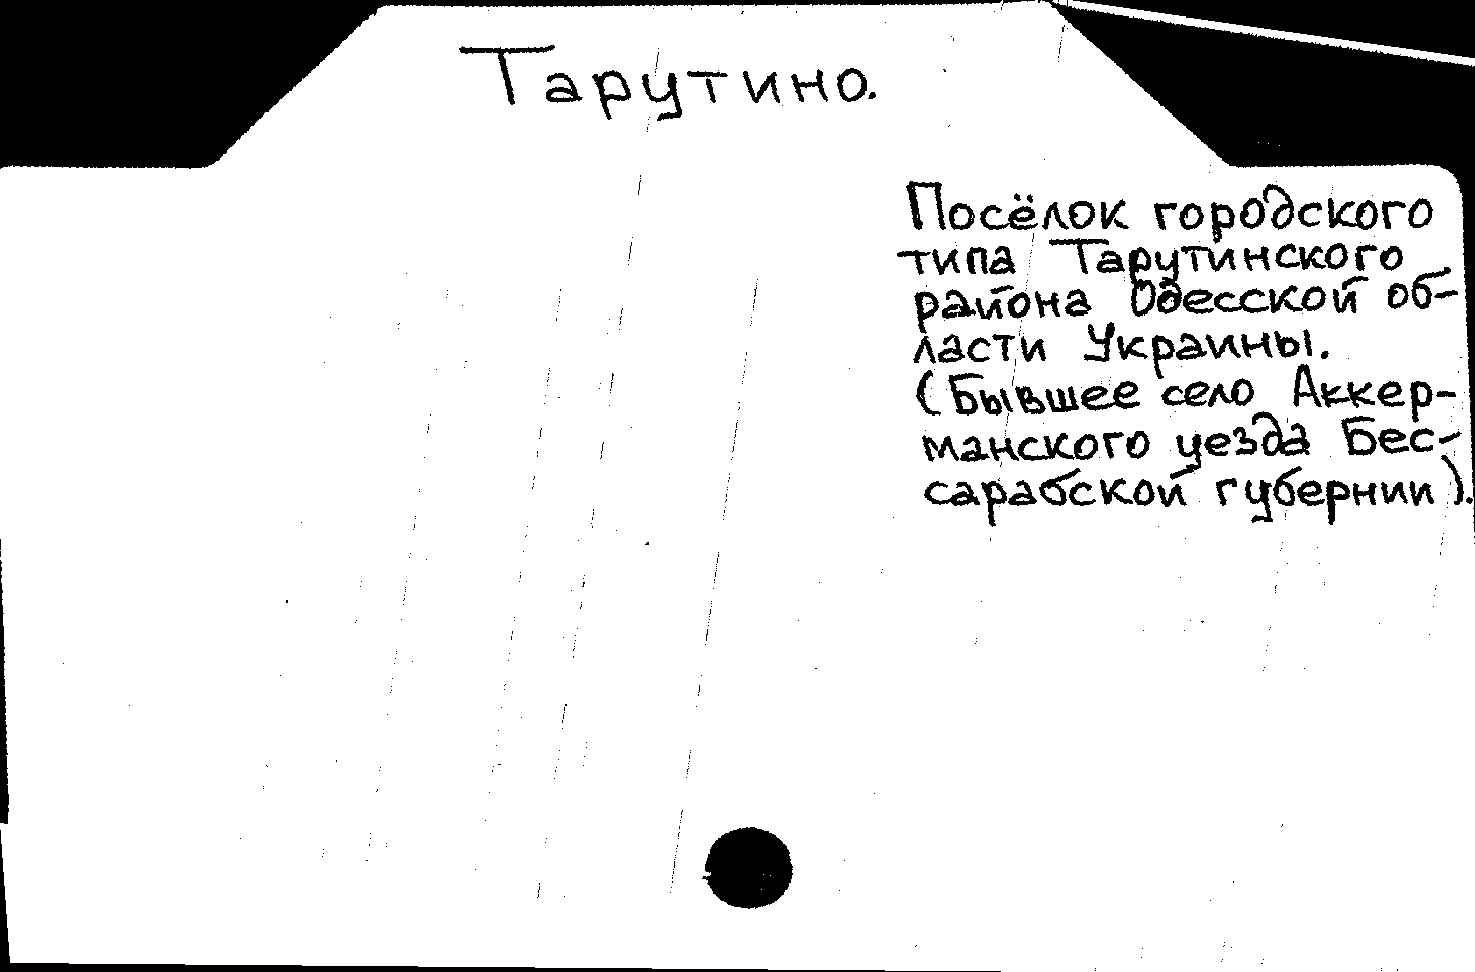 Тарутино.
Посёлок городского
типа Тарутинского
района Одесской об-
ласти Украины.
(Бывшее село Аккер-
манского уезда Бес-
сарабской губернии).